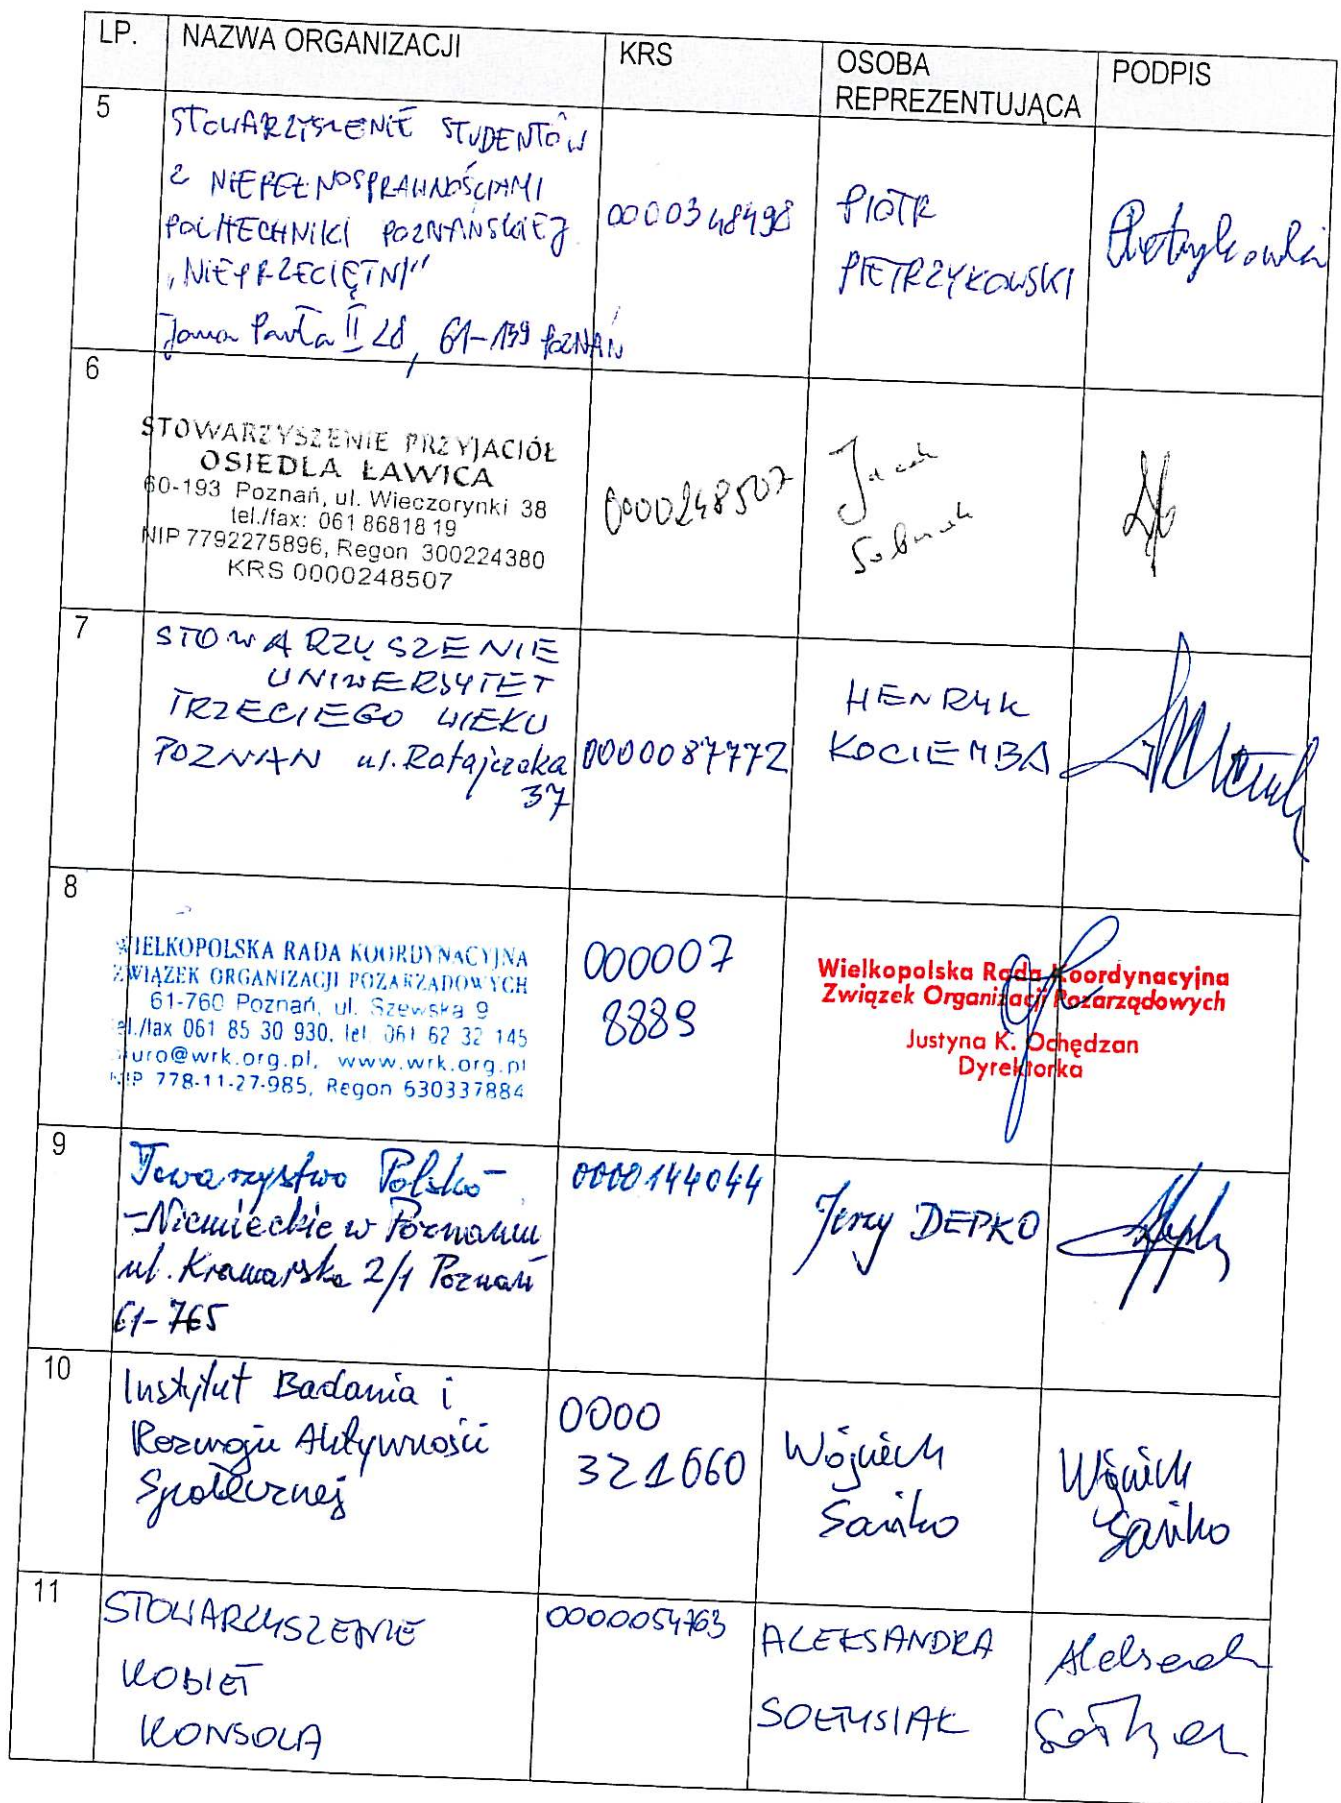 LP. NAZWA ORGANIZACJI KRS OSOBA REPREZENTUJĄCA PODPIS
5
STOWARZYSZENIE STUDENTÓW
Z NIEPEŁNOSPRAWNOŚCIAMI
POLITECHNIKI POZNAŃSKIEJ
"NIEPRZECIĘTNI"
Jana Pawła II 28, 61-139 POZNAŃ
0000348498
PIOTR
PIETRZYKOWSKI
Pietrzykowski
6
STOWARZYSZENIE PRZYJACIÓŁ
OSIEDLA ŁAWICA
60-193 Poznań, ul. Wieczorynki 38
tel./fax: 061 86818 19
NIP 7792275896, Regon 300224380
KRS 0000248507
0000248507
Jacek
7
STOWARZYSZENIE
UNIWERSYTET
TRZECIEGO WIEKU
POZNAŃ ul. Ratajczaka
37
0000087772
HENRYK
KOCIEMBA
8
WIELKOPOLSKA RADA KOORDYNACYJNA
ZWIĄZEK ORGANIZACJI POZARZĄDOWYCH
61-760 Poznań, ul. Szewska 9
tel./fax 061 85 30 930, tel. 061 62 32 145
biuro@wrk.org.pl, www.wrk.org.pl
NIP 778-11-27-985, Regon 630337884
000007
8889
Wielkopolska Rada Koordynacyjna
Związek Organizacji Pozarządowych
Justyna K. Ochędzan
Dyrektorka
9
Towarzystwo Polsko-
-Niemieckie w Poznaniu
ul. Kramarska 2/1 Poznań
61-765
0000144044
Jerzy DEPKO
10
Instytut Badania i
Rozwoju Aktywności
Społecznej
0000
321060
Wojciech
Sańko
Wojciech
Sańko
11
STOWARZYSZENIE
KOBIET
KONSOLA
0000054763
ALEKSANDRA
SOŁTYSIAK